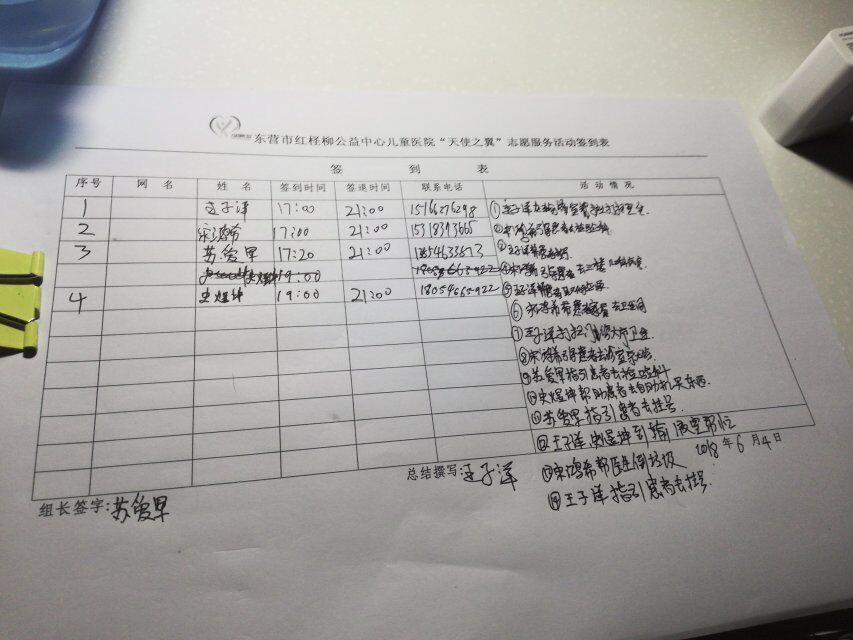 东营市红柽柳公益中心儿童医院“天使之翼”志愿服务活动签到表
签 到 表
序号 网 名 姓 名 签到时间 签退时间 联系电话 活动情况
1 王子洋 17:00 21:00 15166276298
2 宋鸿希 17:00 21:00 15318393665
3 苏俊早 17:20 21:00
19:00
4 史煜坤 19:00 21:00 18054665922
①王子洋
②宋鸿希
③王子洋
④宋鸿希引导患者去
⑤王子洋
⑥宋鸿希带患者家属去卫生间
⑦王子洋打扫门诊大厅卫生
⑧宋鸿希引导患者去
⑨苏俊早指引患者去检验科
⑩史煜坤帮助患者去自助机买东西
⑪苏俊早指引患者去挂号
⑫王子洋史煜坤到输液室帮忙
2018年6月4日
⑬宋鸿希帮医生倒垃圾
⑭王子洋指引患者去挂号
总结撰写:王子洋
组长签字:苏俊早